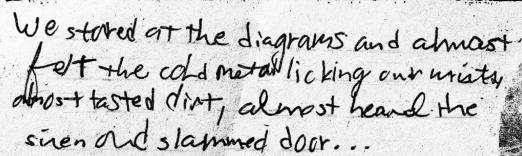 We stared at the diagrams and almost
felt the cold metal licking our wrists,
almost tasted dirt, almost heard the
siren and slammed door...